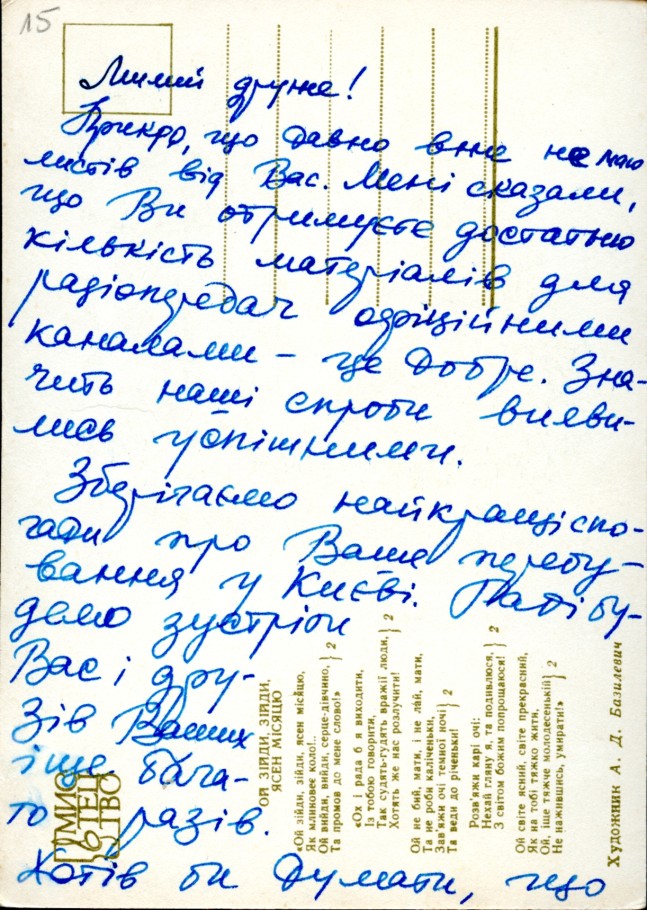 15
Милий друже!
Прикро, що давно вже не маю
листів від Вас. Мені сказали,
що Ви отримуєте достатню
кількість матеріалів для
радіопередач офіційними
каналами – це добре. Зна-
чить наші спроби вияви-
лись успішними.
Зберігаємо найкращі спо-
гади про Ваше перебу-
вання у Києві. Раді бу-
демо зустріти
Вас і дру-
зів Ваших
іще бага-
то разів.
Хотів би думати, що
МИС
ТЕЦ
ТВО
ОЙ ЗІЙДИ, ЗІЙДИ,
ЯСЕН МІСЯЦЮ
«Ой зійди, зійди, ясен місяцю,
Як млиновеє коло!..
Ой вийди, вийди, серце-дівчино,
Та промов до мене слово!» } 2
«Ох і рада б я виходити,
Із тобою говорити,
Так судять-гудять вражії люди,
Хотять же нас розлучити! } 2
Ой не бий, мати, і не лай, мати,
Та не роби каліченьки,
Зав'яжи очі темної ночі
Та веди до річеньки! } 2
Розв'яжи карі очі:
Нехай гляну я, та подивлюся,
З світом божим попрощаюся! } 2
Ой світе ясний, світе прекрасний,
Як на тобі тяжко жити,
Ой, іще тяжче молодесенькій
Не нажившись, умирати!» } 2
Художник А. Д. Базилевич